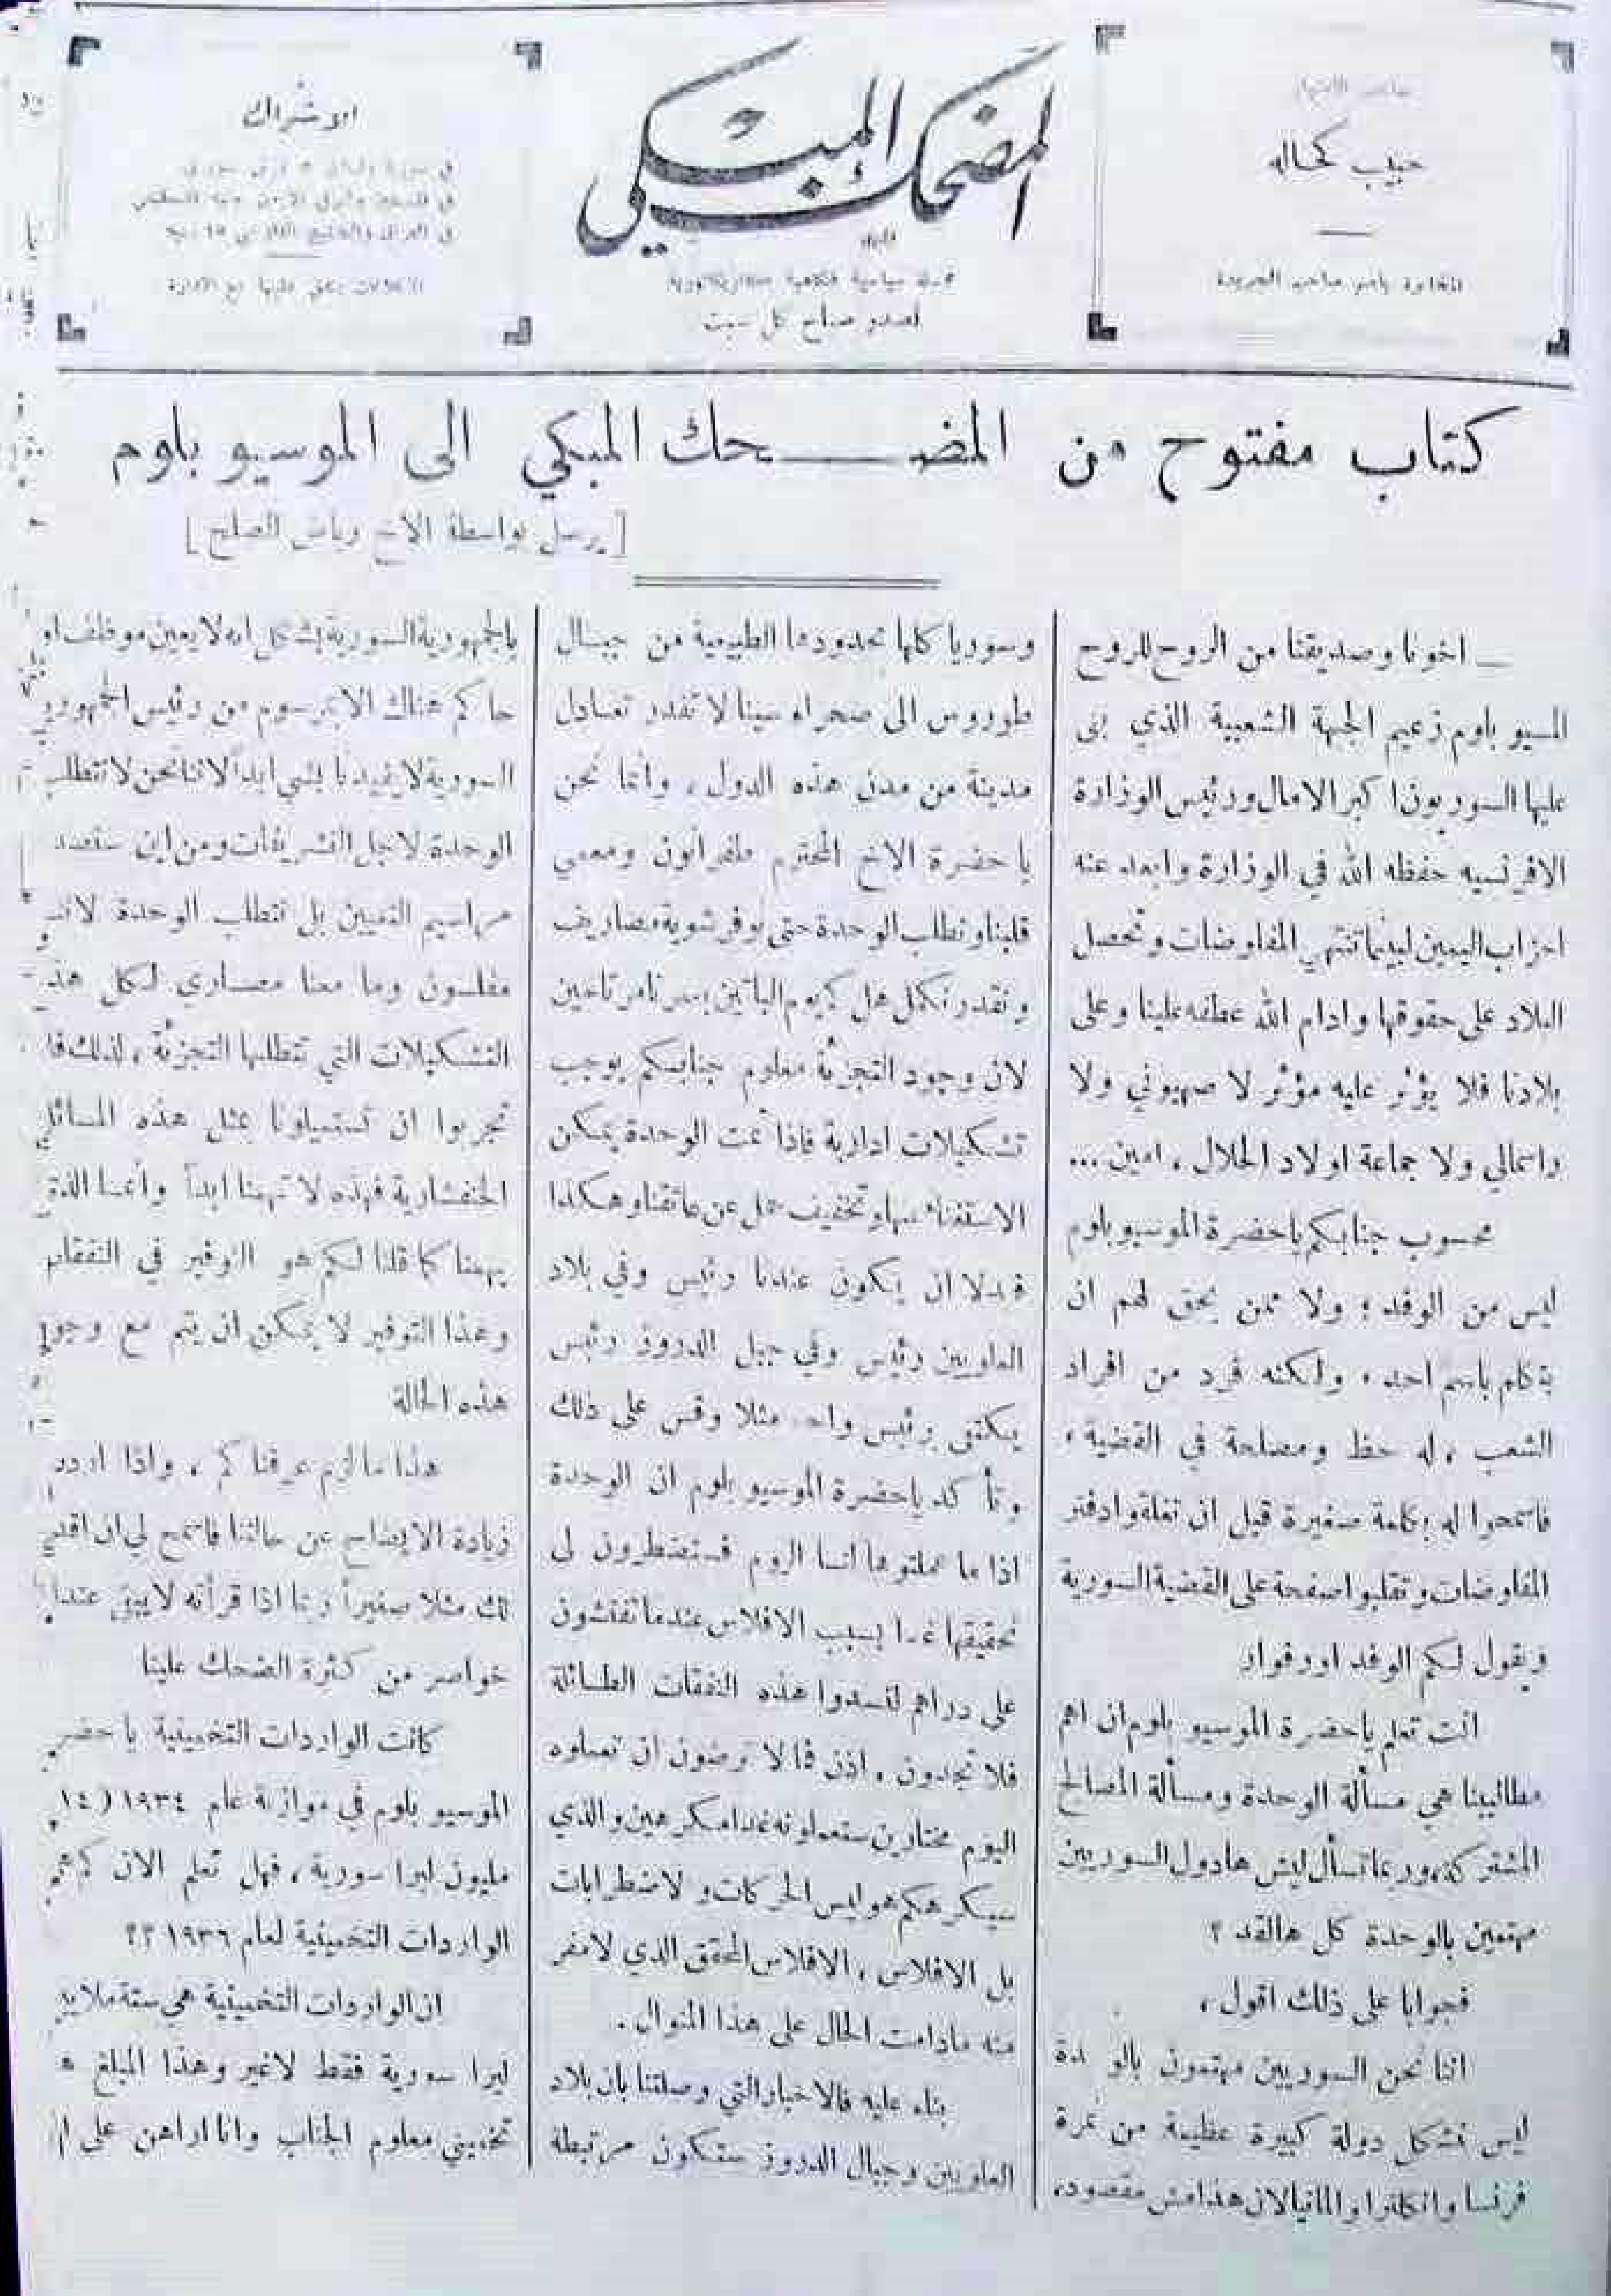 صاحب الامتياز
حبيب كحاله
المخابرة باسم صاحب الجريدة
المضحك المبكي
سياسية فكاهية
تصدر صباح كل سبت
الاشتراك
في سورية ولبنان
في العراق والخليج الفارسي
الاعلانات يتفق عليها مع الادارة
كتاب مفتوح من المضحك المبكي الى الموسيو بلوم
[يرسل بواسطة الاخ رياض الصلح]
ــ اخونا وصديقنا من الروح للروح
المسيو بلوم زعيم الجبهة الشعبية الذي بنى
عليها السوريون اكبر الامال ورئيس الوزارة
الافرنسيه حفظه الله في الوزارة وابعد عنه
احزاب اليمين لبينما تنتهي المفاوضات وتحصل
البلاد على حقوقها وادام الله عطفه علينا وعلى
بلادنا فلا يؤثر عليه مؤثر لا صهيوني ولا
راسمالي ولا جماعة اولاد الحلال ، امين ...
محسوب جنابكم ياحضرة الموسيو بلوم
ليس من الوفد ؛ ولا ممن يحق لهم ان
يتكلم باسم احد ، ولكنه فرد من افراد
الشعب ، له حظ ومصلحة في القضية ،
فاسمحوا له بكلمة صغيرة قبل ان تغلقوا دفتر
المفاوضات وتقلبوا صفحة على القضية السورية
ويقول لكم الوفد اورفوار
انت تعلم ياحضرة الموسيو بلوم ان اهم
مطاليبنا هي مسألة الوحدة ومسألة المصالح
المشتركة وربما تسأل ليش هادول السوريين
مهتمين بالوحدة كل هالقد ؟
فجوابا على ذلك اقول ،
اننا نحن السوريين مهتمون بالوحدة
ليس لتشكل دولة كبيرة عظيمة من نمرة
فرنسا وانكلترا والمانيا لان هذا مش مقصود،
وسوريا كلها بحدودها الطبيعية من جبال
طوروس الى صحراء سينا لا تقدر تعادل
مدينة من مدن هذه الدول ، وانما نحن
يا حضرة الاخ المحترم طفرانون ومعمي
قلبنا ونطلب الوحدة حتى نوفر شوية مصاريف
ونقدر نكمل هل كم يوم الباقين بعمرنا مرتاحين
لان وجود التجزئة معلوم جنابكم يوجب
تشكيلات ادارية فاذا تمت الوحدة يمكن
الاستغناء عنها وتخفيف حمل عن عاتقنا وهكذا
فبدلا ان يكون عندنا رئيس وفي بلاد
العلويين رئيس وفي جبل الدروز رئيس
يكتفى برئيس واحد مثلا وقس على ذلك
وتأكد ياحضرة الموسيو بلوم ان الوحدة
اذا ما عملتوها لنا اليوم فستضطرون الى
تحقيقها غدا بسبب الافلاس عندما تفتشون
على دراهم لتسدوا هذه النفقات الطائلة
فلا تجدون ، اذن فما لا ترضون ان تعملوه
اليوم مختارين ستعملونه غدا مكرهين والذي
سيكرهكم هو ليس الحركات ولا اضطرابات
بل الافلاس ، الافلاس المحقق الذي لا مفر
منه مادامت الحال على هذا المنوال .
بناء عليه فالاخبار التي وصلتنا بان بلاد
العلويين وجبال الدروز ستكون مرتبطة
بالجمهورية السورية بشكل انه لا يعين موظف او
حاكم هناك الا بمرسوم من رئيس الجمهورية
السورية لا يفيدنا بشي ابداً لاننا نحن لا نتطلب
الوحدة لاجل التشريفات ومن اين ستصدر
مراسيم التعيين بل نتطلب الوحدة لاننا
مفلسون وما معنا مصاري لكل هذه
التشكيلات التي تتطلبها التجزئة ، لذلك فلا
تجربوا ان تستميلونا بمثل هذه المسائل
الخنفشارية فهذه لا تهمنا ابداً وانما الذي
يهمنا كما قلنا لكم هو التوفير في النفقات
وهذا التوفير لا يمكن ان يتم مع وجود
هذه الحالة
هذا ما لزم عرفناكم ، واذا اردت
زيادة الايضاح عن حالتنا فاسمح لي ان اقدم
لك مثلا صغيراً ربما اذا قرأته لا يبقى عندك
خواصر من كثرة الضحك علينا
كانت الواردات التخمينية يا حضرة
الموسيو بلوم في موازنة عام ١٩٣٤ (١٤
مليون ليرا سورية ، فهل تعلم الان كم هي
الواردات التخمينية لعام ١٩٣٦ ؟؟
ان الواردات التخمينية هي ستة ملايين
ليرا سورية فقط لاغير وهذا المبلغ هو
تخميني معلوم الجناب وانا اراهن على ان